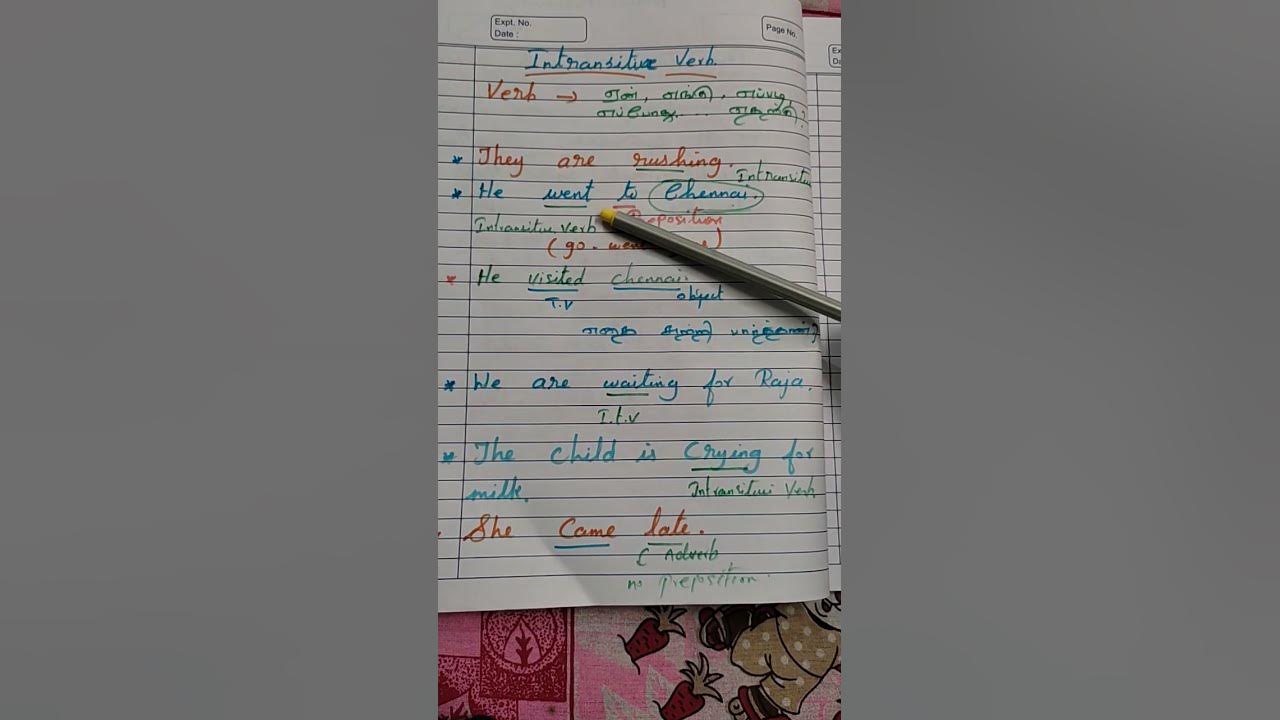 Expt. No.
Date :
Page No.
Intransitive Verb.
Verb → ஏன், எங்கு, எப்படி,
எப்போது.... எதற்கு?
* They are rushing.
Intransitive
* He went to Chennai.
Intransitive Verb Preposition
(go - went
* He visited Chennai.
T.V object
எதை சுற்றி பார்த்தான்?
* We are waiting for Raja.
I.t.v
* The child is Crying for
milk. Intransitive Verb
She Came late.
( Adverb
no preposition.